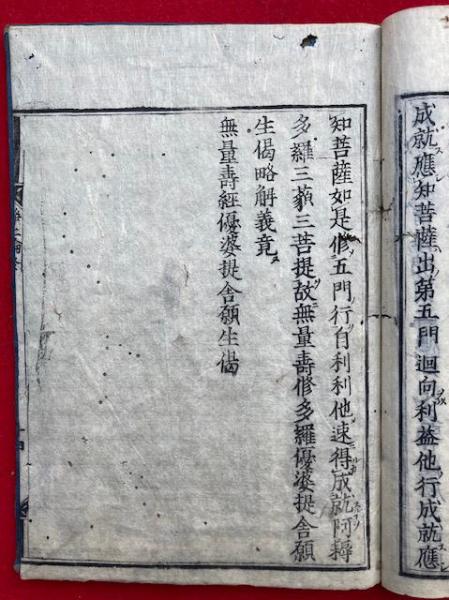 成就應知菩薩出第五門迴向利益他行成就應
知菩薩如是修五門行自利利他速得成就阿耨
多羅三藐三菩提故無量壽修多羅優婆提舍願
生偈略解義竟
無量壽經優婆提舍願生偈